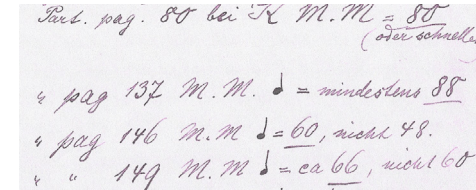 Part. pag. 80 bei K M.M = 80
(oder schneller
" pag 137 M.M. ♩ = mindestens 88
" pag 146 M.M ♩ = 60, nicht 48.
" " 149 M.M ♩ = ca 66, nicht 60